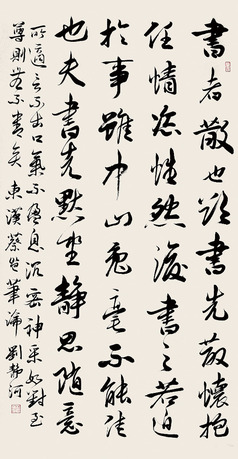 書者散也欲書先散懷抱
任情恣性然後書之若迫
於事雖中山兔毫不能佳
也夫書先默坐靜思隨意
所適言不出口氣不盈息沉密神采如對至
尊則無不善矣 東漢蔡邕筆論 劉靜河